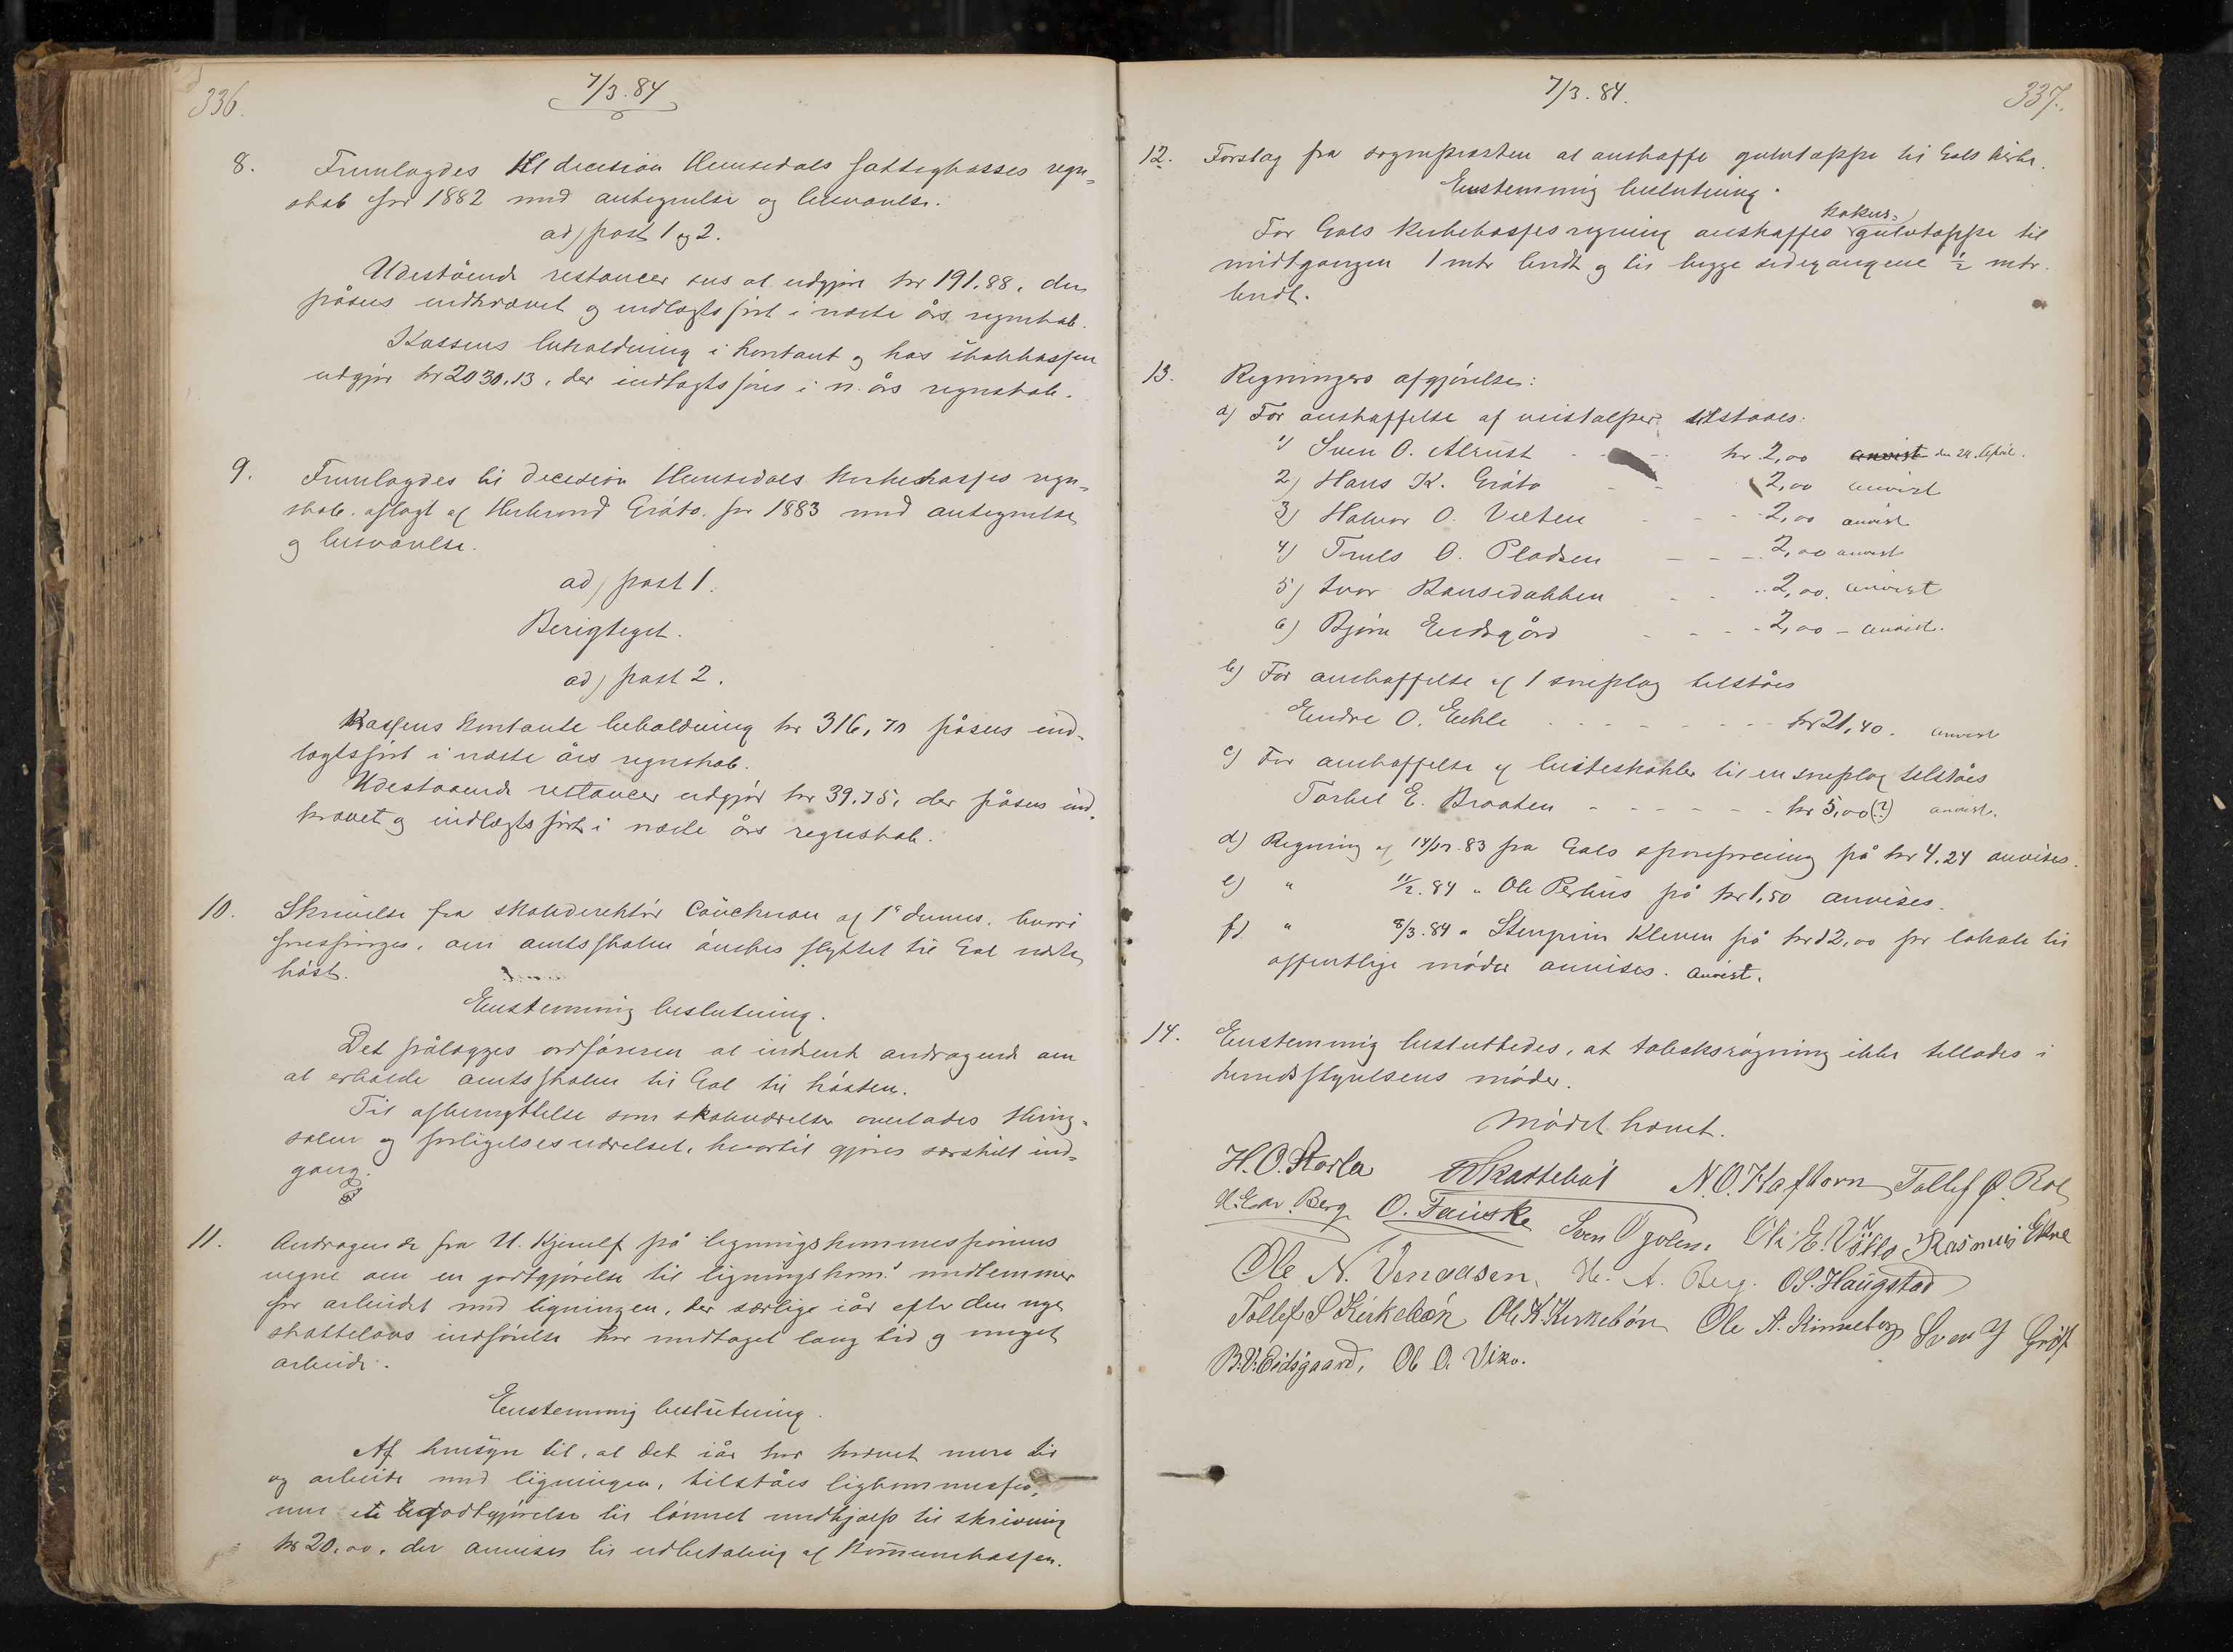 336.
7/3.84
8. Fremlagdes til decision Hemsedals fattigkasses regn=
skab for 1882 med antegnelse og besvarelse.
ad) post 1 og 2.
Udestående restancer sees at udgjøre kr 191,88, der
påsees indkrævet og indtægtsført i næste års regnskab.
Kassens beholdning i kontant og hos skatkassen
udgjør kr 2030.13, der indtægtsføres i n. års regnskab.
9. Fremlagdes til decision Hemsedals kirkekasses regn=
skab aflagt af Herbrand Gråto for 1883 med antegnelse
og besvarelse.
ad) post 1.
Berigteget.
ad) post 2.
Kassens kontante beholdning kr 316,70 påsees ind-
tægtsført i næste års regnskab.
Udestaaende restancer udgjør kr 39.75, der påsees ind-
krævet og indtægtsført i næste års regnskab.
10. Skrivelse fra skoledirektør Cauchron af 1ste dennes, hvori
forespørges, om amtsskolen ønskes flyttet til Gol næste
høst.
Enstemmig beslutning.
Det pålægges ordføreren at indsende andragende om
at erholde amtsskolen til Gol til høsten.
Til afbenyttelse som skoleværelser overlades thing=
salen og forligelsesværelset, hvortil gjøres særskilt ind=
gang.
11. Andragende fra U. Kjerulf på ligningskommissionens
vegne om en godtgjørelse til ligningskom. medlemmer
for arbeidet med ligningen, der særlige iår efter den nye
skattelovs indførelse har medtaget lang tid og meget
arbeide.
Enstemmig beslutning.
Af hensyn til, at det iår har krævet mere tid
og arbeide med ligningen, tilståes ligkommissio=
nen godtgjørelse til lønnet medhjælp til skrivning
kr 20,00, der anvises til udbetaling af kommunekassen.
7/3.84.
337.
12. Forslag fra sognepresten at anskaffe gulvtæppe til Gols kirke.
Enstemmig beslutning.
kokus=
For Gols kirkekasses regning anskaffes gulvtæppe til
midtgangen 1 mtr bredt og til begge sidegangene ½ mtr.
bredt.
13. Regningers afgjørelse:
a) For anskaffelse af veistolper tilstaaes:
1) Sven O. Alrust - - - kr. 2,00 anvist den 24. April.
2) Hans K. Gråto - - 2,00 anvist
3) Halvor O. Villen - - - 2,00 anvist
4) Truls O. Pladsen - - - 2,00 anvist
5) Ivar Bansedokken - - - 2,00. anvist
6) Bjørn Eidsgård - - - - 2,00 - anvist.
b) For anskaffelse af 1 sneplog tilståes
Endre O. Eikle - - - - - - - kr 21,40. anvist
c) For anskaffelse af til en sneplog tilståes
Torkel E. Braaten - - - - - - kr 5,00 (?) anvist.
d) Regning af 14/12.83 fra Gols på kr 4.24 anvises.
e) " 11/2.84 " Ole Perhus på kr 1,50 anvises.
f) " 8/3.84 " Stengrim Kleven på kr 12,00 for lokale til
offentlige møder anvises. anvist.
14. Enstemmig besluttedes, at tobaksrøgning ikke tillades i
herredsstyrelsens møder.
Mødet hævet.
H. O. Storla N. O. Hafthorn Tollef O. Rol
H. Edv. Berg O. Fauske Sven O Golen. Ole E. Vøllo Rasmus Ekre
Ole N. Venaasen. He. A. Berg. O. S. Haugstad
Tollef S Kirkebøn Ole K. Kirkebøn Ole A. Kinneberg Sven Y Grøt
B. V. Eidsgaard, Ole O. Viko.